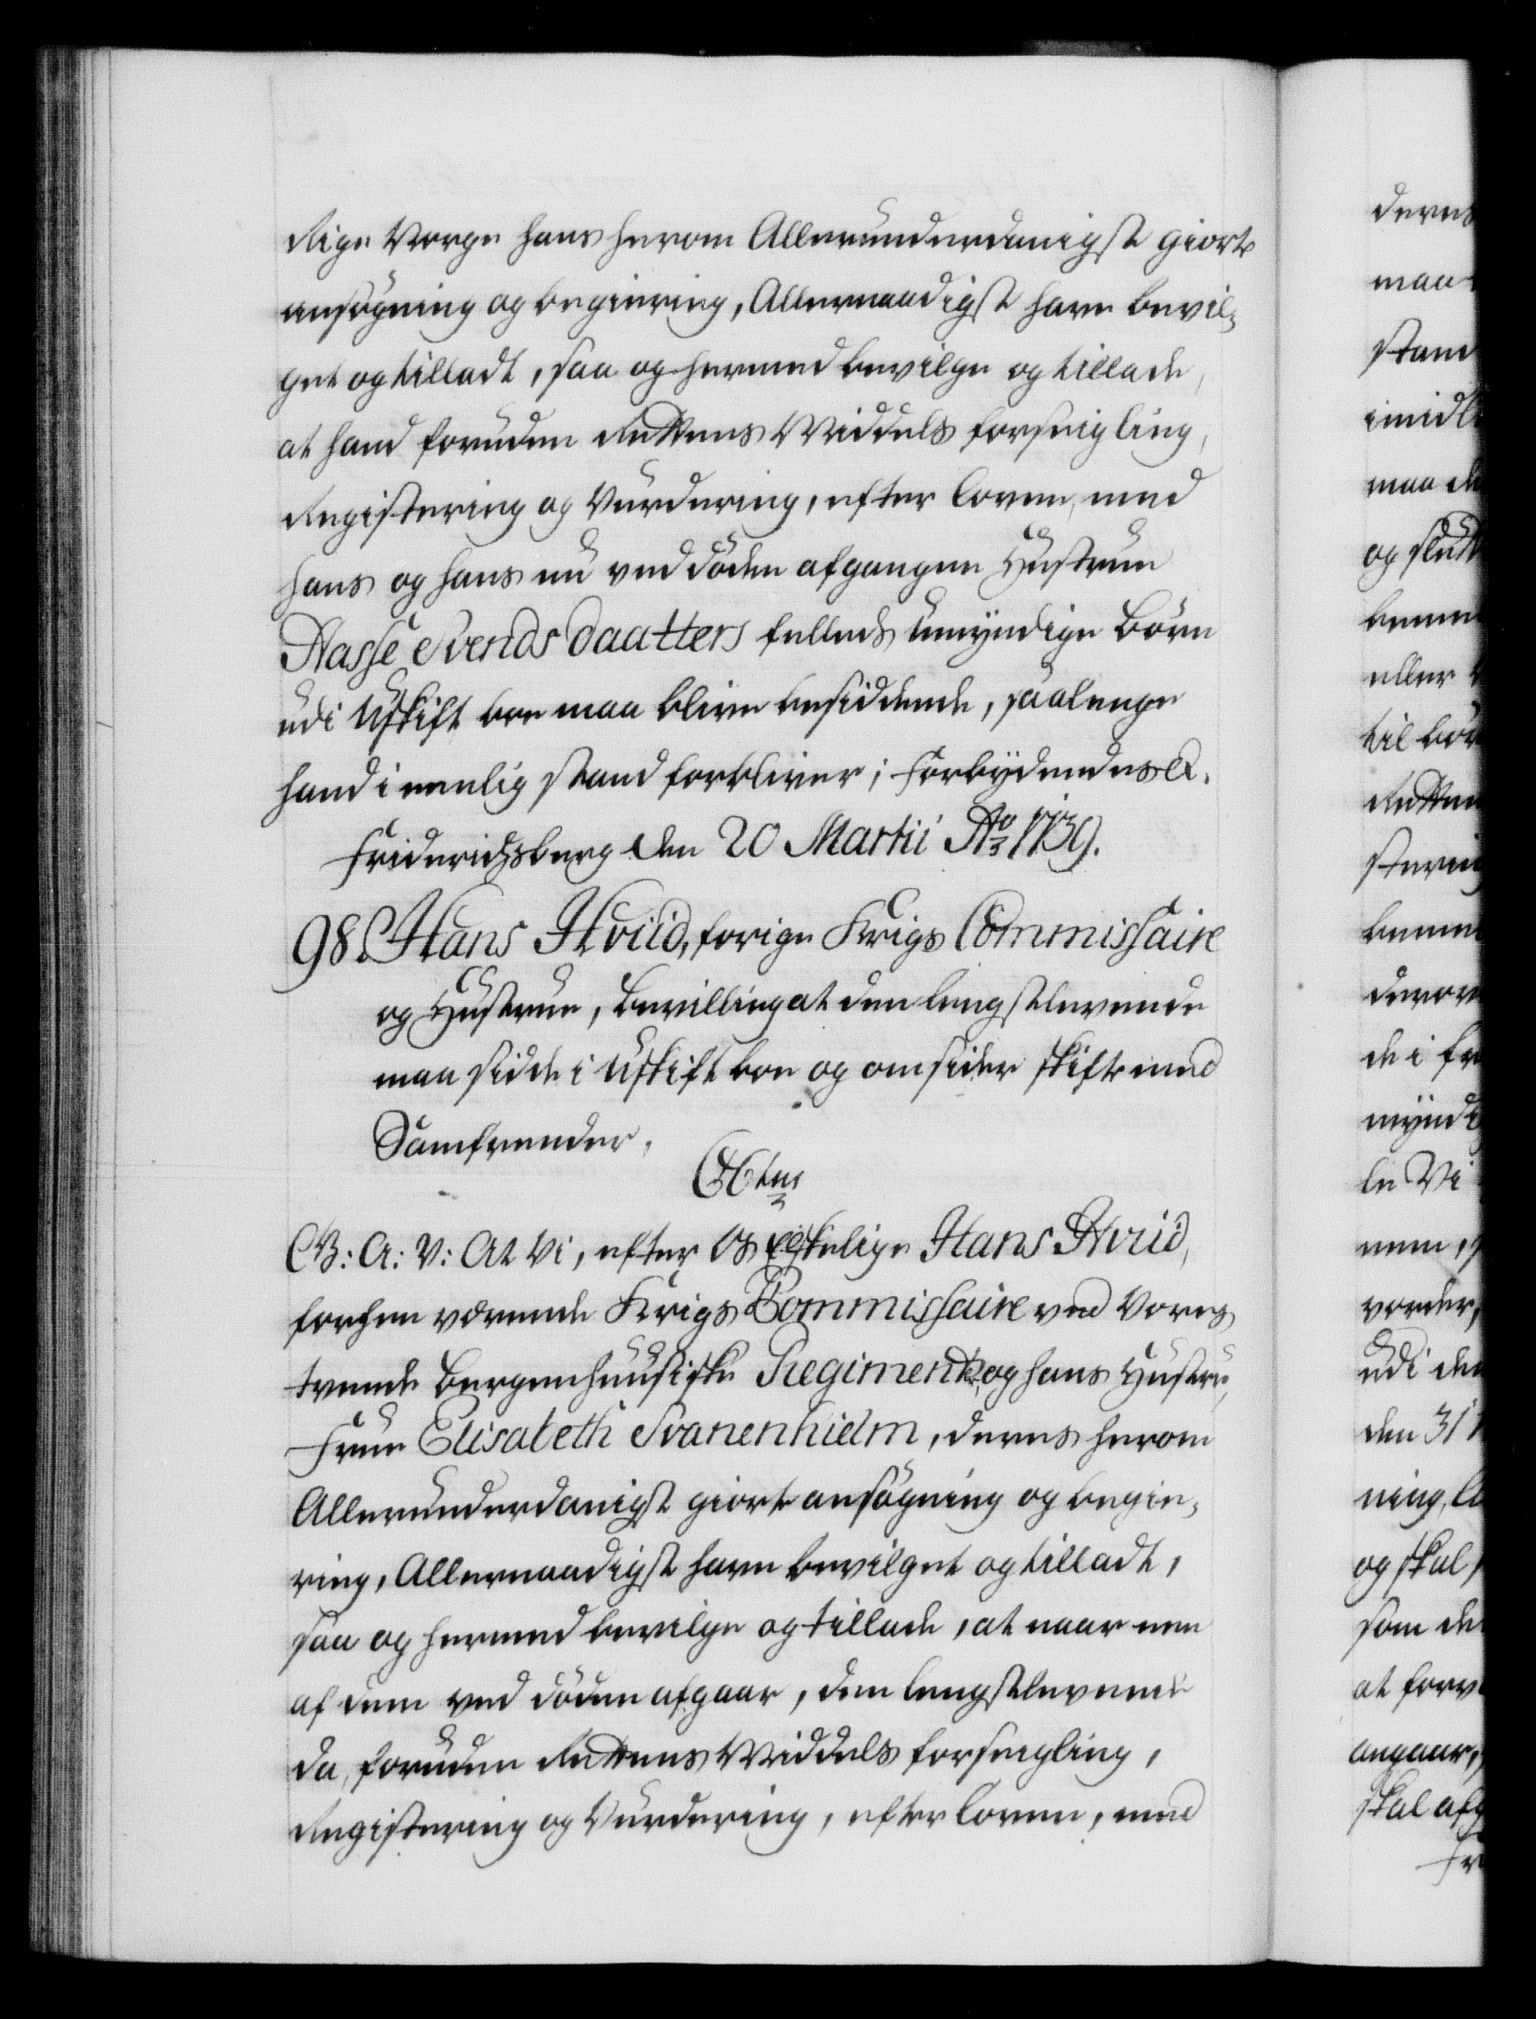 Rige Norge hans herom Allerunderdanigst giorte
ansøgning og begiering, Allernaadigst have bevil-
get og tilladt, saa og hermed bevilge og tillade,
at hand foruden Rettens Middels forseigling,
Registering og Vurdering, efter loven, med
hans og hans nu ved døden afgangne Hustrue
Aasse Svends daatters felleds umyndige Børn
udi Uskift boe maa blive besiddende, saalenge
hand i eenlig stand forbliver; Forbydendes &.
Friderichsberg den 20 Martii Ao 1739.
98. Hans Hviid, forige Krigs Commissaire
og Hustrue, Bevilling at den lengstlevende
maa sidde i Uskift boe og omsider skifte med
Samfrender.
C 6tus
G: A: V: At Vi, efter Os Elskelige Hans Hviid,
forhen værende Krigs Commissaire ved Vores
tvende Bergenhuusiske Regimenter, og hans Hustrue,
Frue Elisabeth Svanenhielm, deres herom
Allerunderdanigst giorte ansøgning og begie-
ring, Allernaadigst have bevilget og tilladt,
saa og hermed bevilge og tillade, at naar een
af dem ved døden afgaar, den lengstlevende
da, foruden Rettens Middels forseigling,
Registering og Vurdering, efter loven, med
deres
maa
stand
maa
og slutt
eller
til bør
de i fr
mynd
le Vi
vorder,
udi den
den 31
ning,
og skal
som de
at forv
angaar,
skal afg
Fr